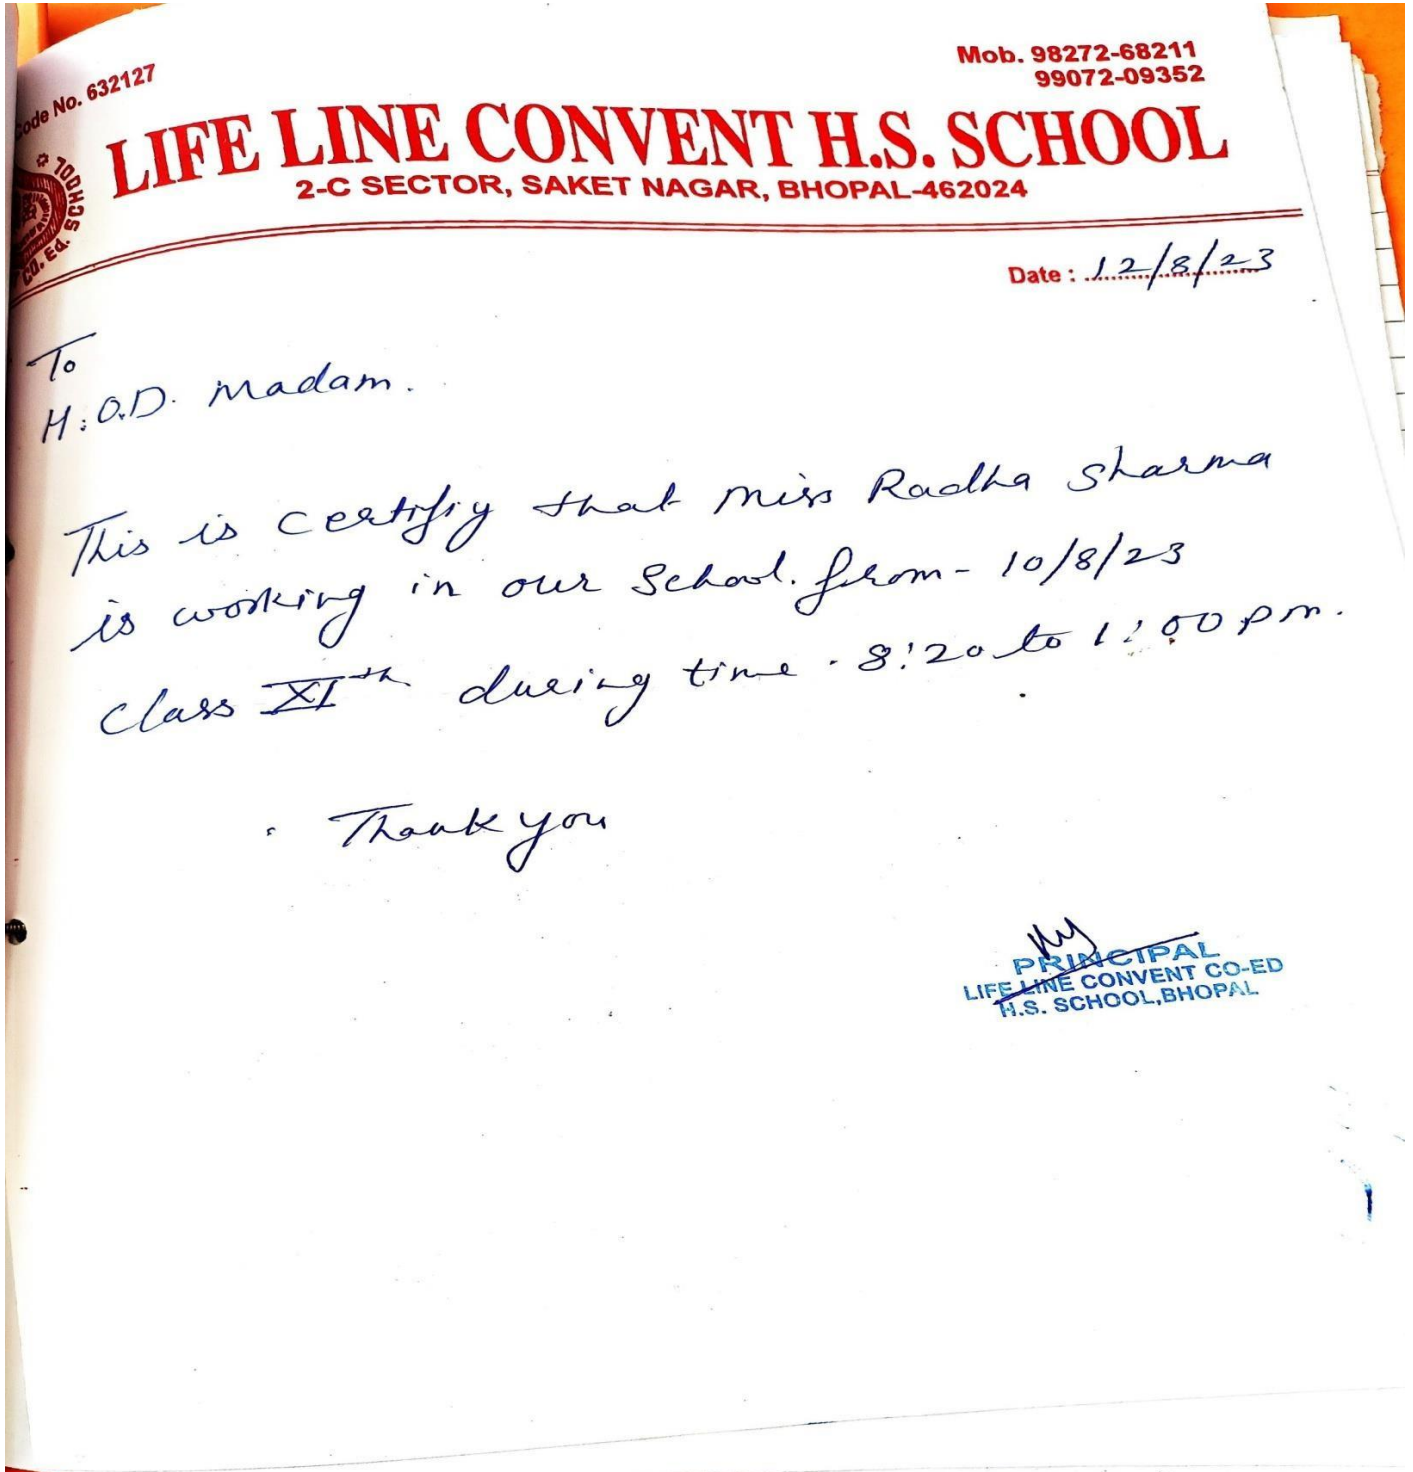 Code No. 632127
Mob. 98272-68211
99072-09352
LIFE LINE CONVENT H.S. SCHOOL
2-C SECTOR, SAKET NAGAR, BHOPAL-462024
CO. Ed. SCHOOL
Date : 12/8/23
To
H.O.D. Madam.
This is certifiy that Miss Radha Sharma
is working in our School. from - 10/8/23
Class XIth during time . 8:20 to 1:00 pm.
Thank you
PRINCIPAL
LIFE LINE CONVENT CO-ED
H.S. SCHOOL,BHOPAL